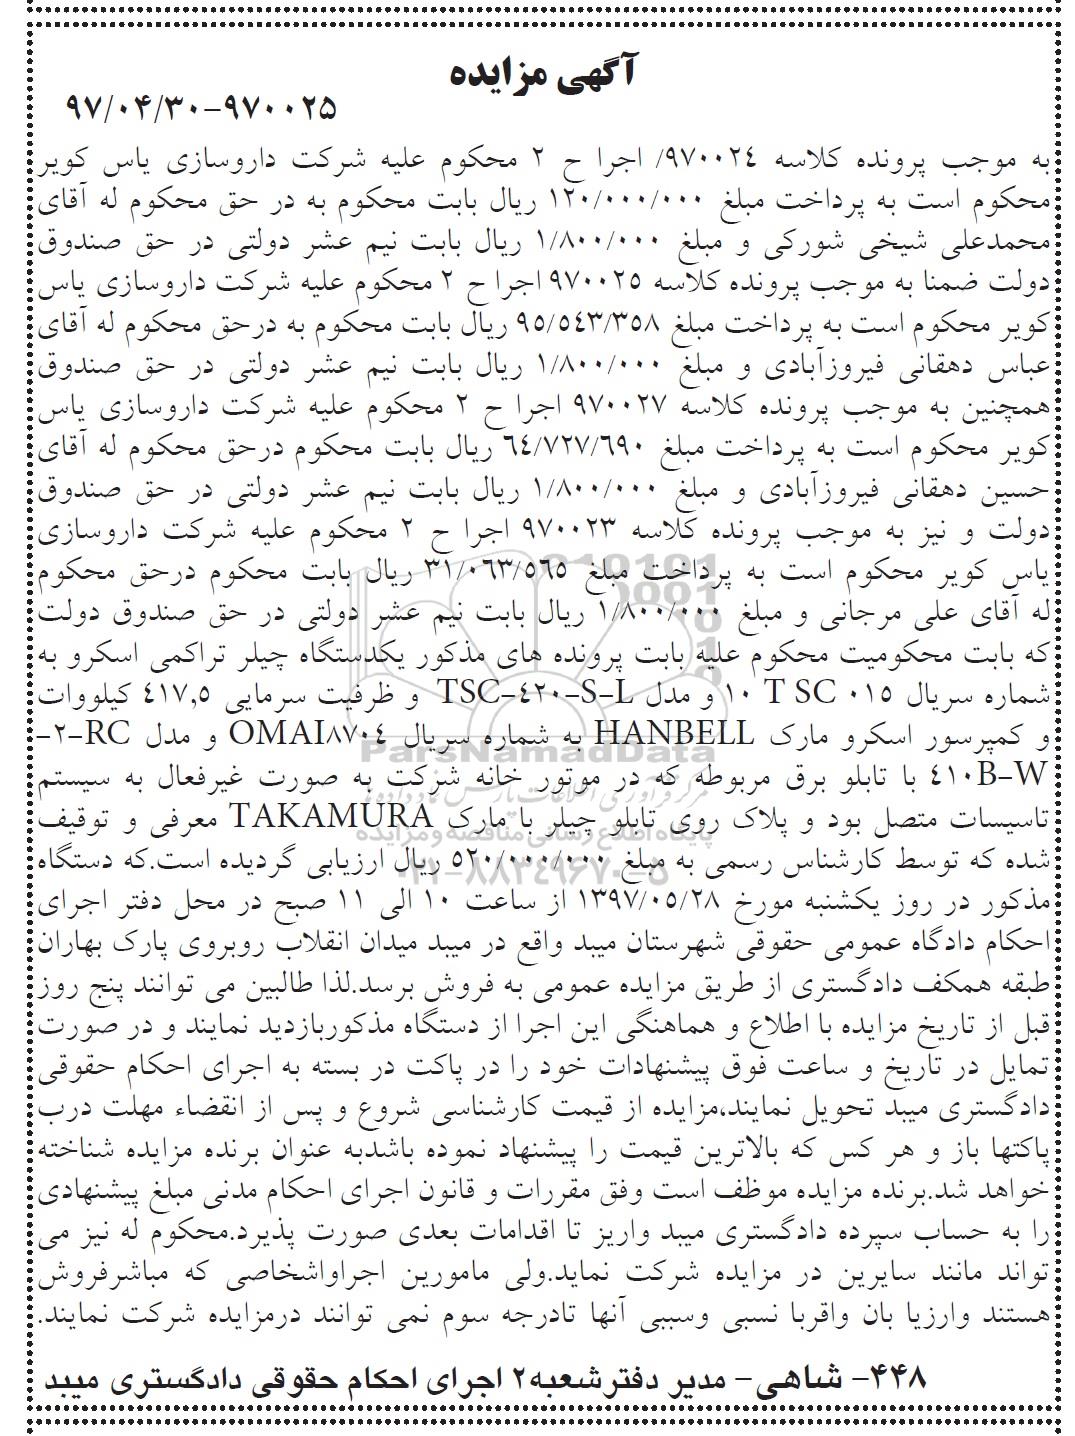 آگهی مزایده
۹۷/۰۴/۳۰-۹۷۰۰۲۵
به موجب پرونده کلاسه ۹۷۰۰۲۴/ اجرا ح ۲ محکوم علیه شرکت داروسازی یاس کویر
محکوم است به پرداخت مبلغ ۱۲۰/۰۰۰/۰۰۰ ریال بابت محکوم به در حق محکوم له آقای
محمدعلی شیخی شورکی و مبلغ ۱/۸۰۰/۰۰۰ ریال بابت نیم عشر دولتی در حق صندوق
دولت ضمنا به موجب پرونده کلاسه ۹۷۰۰۲۵ اجرا ح ۲ محکوم علیه شرکت داروسازی یاس
کویر محکوم است به پرداخت مبلغ ۹۵/۵۴۳/۳۵۸ ریال بابت محکوم به درحق محکوم له آقای
عباس دهقانی فیروزآبادی و مبلغ ۱/۸۰۰/۰۰۰ ریال بابت نیم عشر دولتی در حق صندوق
همچنین به موجب پرونده کلاسه ۹۷۰۰۲۷ اجرا ح ۲ محکوم علیه شرکت داروسازی یاس
کویر محکوم است به پرداخت مبلغ ۶۴/۷۲۷/۶۹۰ ریال بابت محکوم درحق محکوم له آقای
حسین دهقانی فیروزآبادی و مبلغ ۱/۸۰۰/۰۰۰ ریال بابت نیم عشر دولتی در حق صندوق
دولت و نیز به موجب پرونده کلاسه ۹۷۰۰۲۳ اجرا ح ۲ محکوم علیه شرکت داروسازی
یاس کویر محکوم است به پرداخت مبلغ ۳۱/۰۶۳/۵۶۵ ریال بابت محکوم درحق محکوم
له آقای علی مرجانی و مبلغ ۱/۸۰۰/۰۰۰ ریال بابت نیم عشر دولتی در حق صندوق دولت
که بابت محکومیت محکوم علیه بابت پرونده های مذکور یکدستگاه چیلر تراکمی اسکرو به
شماره سریال ۰۱۵ T SC ۱۰ و مدل TSC-۴۲۰-S-L و ظرفیت سرمایی ۴۱۷,۵ کیلووات
و کمپرسور اسکرو مارک HANBELL به شماره سریال OMAI۸۷۰۴ و مدل RC-۲-
۴۱۰B-W با تابلو برق مربوطه که در موتور خانه شرکت به صورت غیرفعال به سیستم
تاسیسات متصل بود و پلاک روی تابلو چیلر با مارک TAKAMURA معرفی و توقیف
شده که توسط کارشناس رسمی به مبلغ ۵۲۰/۰۰۰/۰۰۰ ریال ارزیابی گردیده است.که دستگاه
مذکور در روز یکشنبه مورخ ۱۳۹۷/۰۵/۲۸ از ساعت ۱۰ الی ۱۱ صبح در محل دفتر اجرای
احکام دادگاه عمومی حقوقی شهرستان میبد واقع در میبد میدان انقلاب روبروی پارک بهاران
طبقه همکف دادگستری از طریق مزایده عمومی به فروش برسد.لذا طالبین می توانند پنج روز
قبل از تاریخ مزایده با اطلاع و هماهنگی این اجرا از دستگاه مذکوربازدید نمایند و در صورت
تمایل در تاریخ و ساعت فوق پیشنهادات خود را در پاکت در بسته به اجرای احکام حقوقی
دادگستری میبد تحویل نمایند،مزایده از قیمت کارشناسی شروع و پس از انقضاء مهلت درب
پاکتها باز و هر کس که بالاترین قیمت را پیشنهاد نموده باشدبه عنوان برنده مزایده شناخته
خواهد شد.برنده مزایده موظف است وفق مقررات و قانون اجرای احکام مدنی مبلغ پیشنهادی
را به حساب سپرده دادگستری میبد واریز تا اقدامات بعدی صورت پذیرد.محکوم له نیز می
تواند مانند سایرین در مزایده شرکت نماید.ولی مامورین اجراواشخاصی که مباشرفروش
هستند وارزیا بان واقربا نسبی وسببی آنها تادرجه سوم نمی توانند درمزایده شرکت نمایند.
۴۴۸- شاهی- مدیر دفترشعبه۲ اجرای احکام حقوقی دادگستری میبد
ParsNamadData
مرکز فرآوری اطلاعات پارس نماد داده ها
پایگاه اطلاع رسانی مناقصه و مزایده
۰۲۱-۸۸۳۴۹۶۷۰-۵